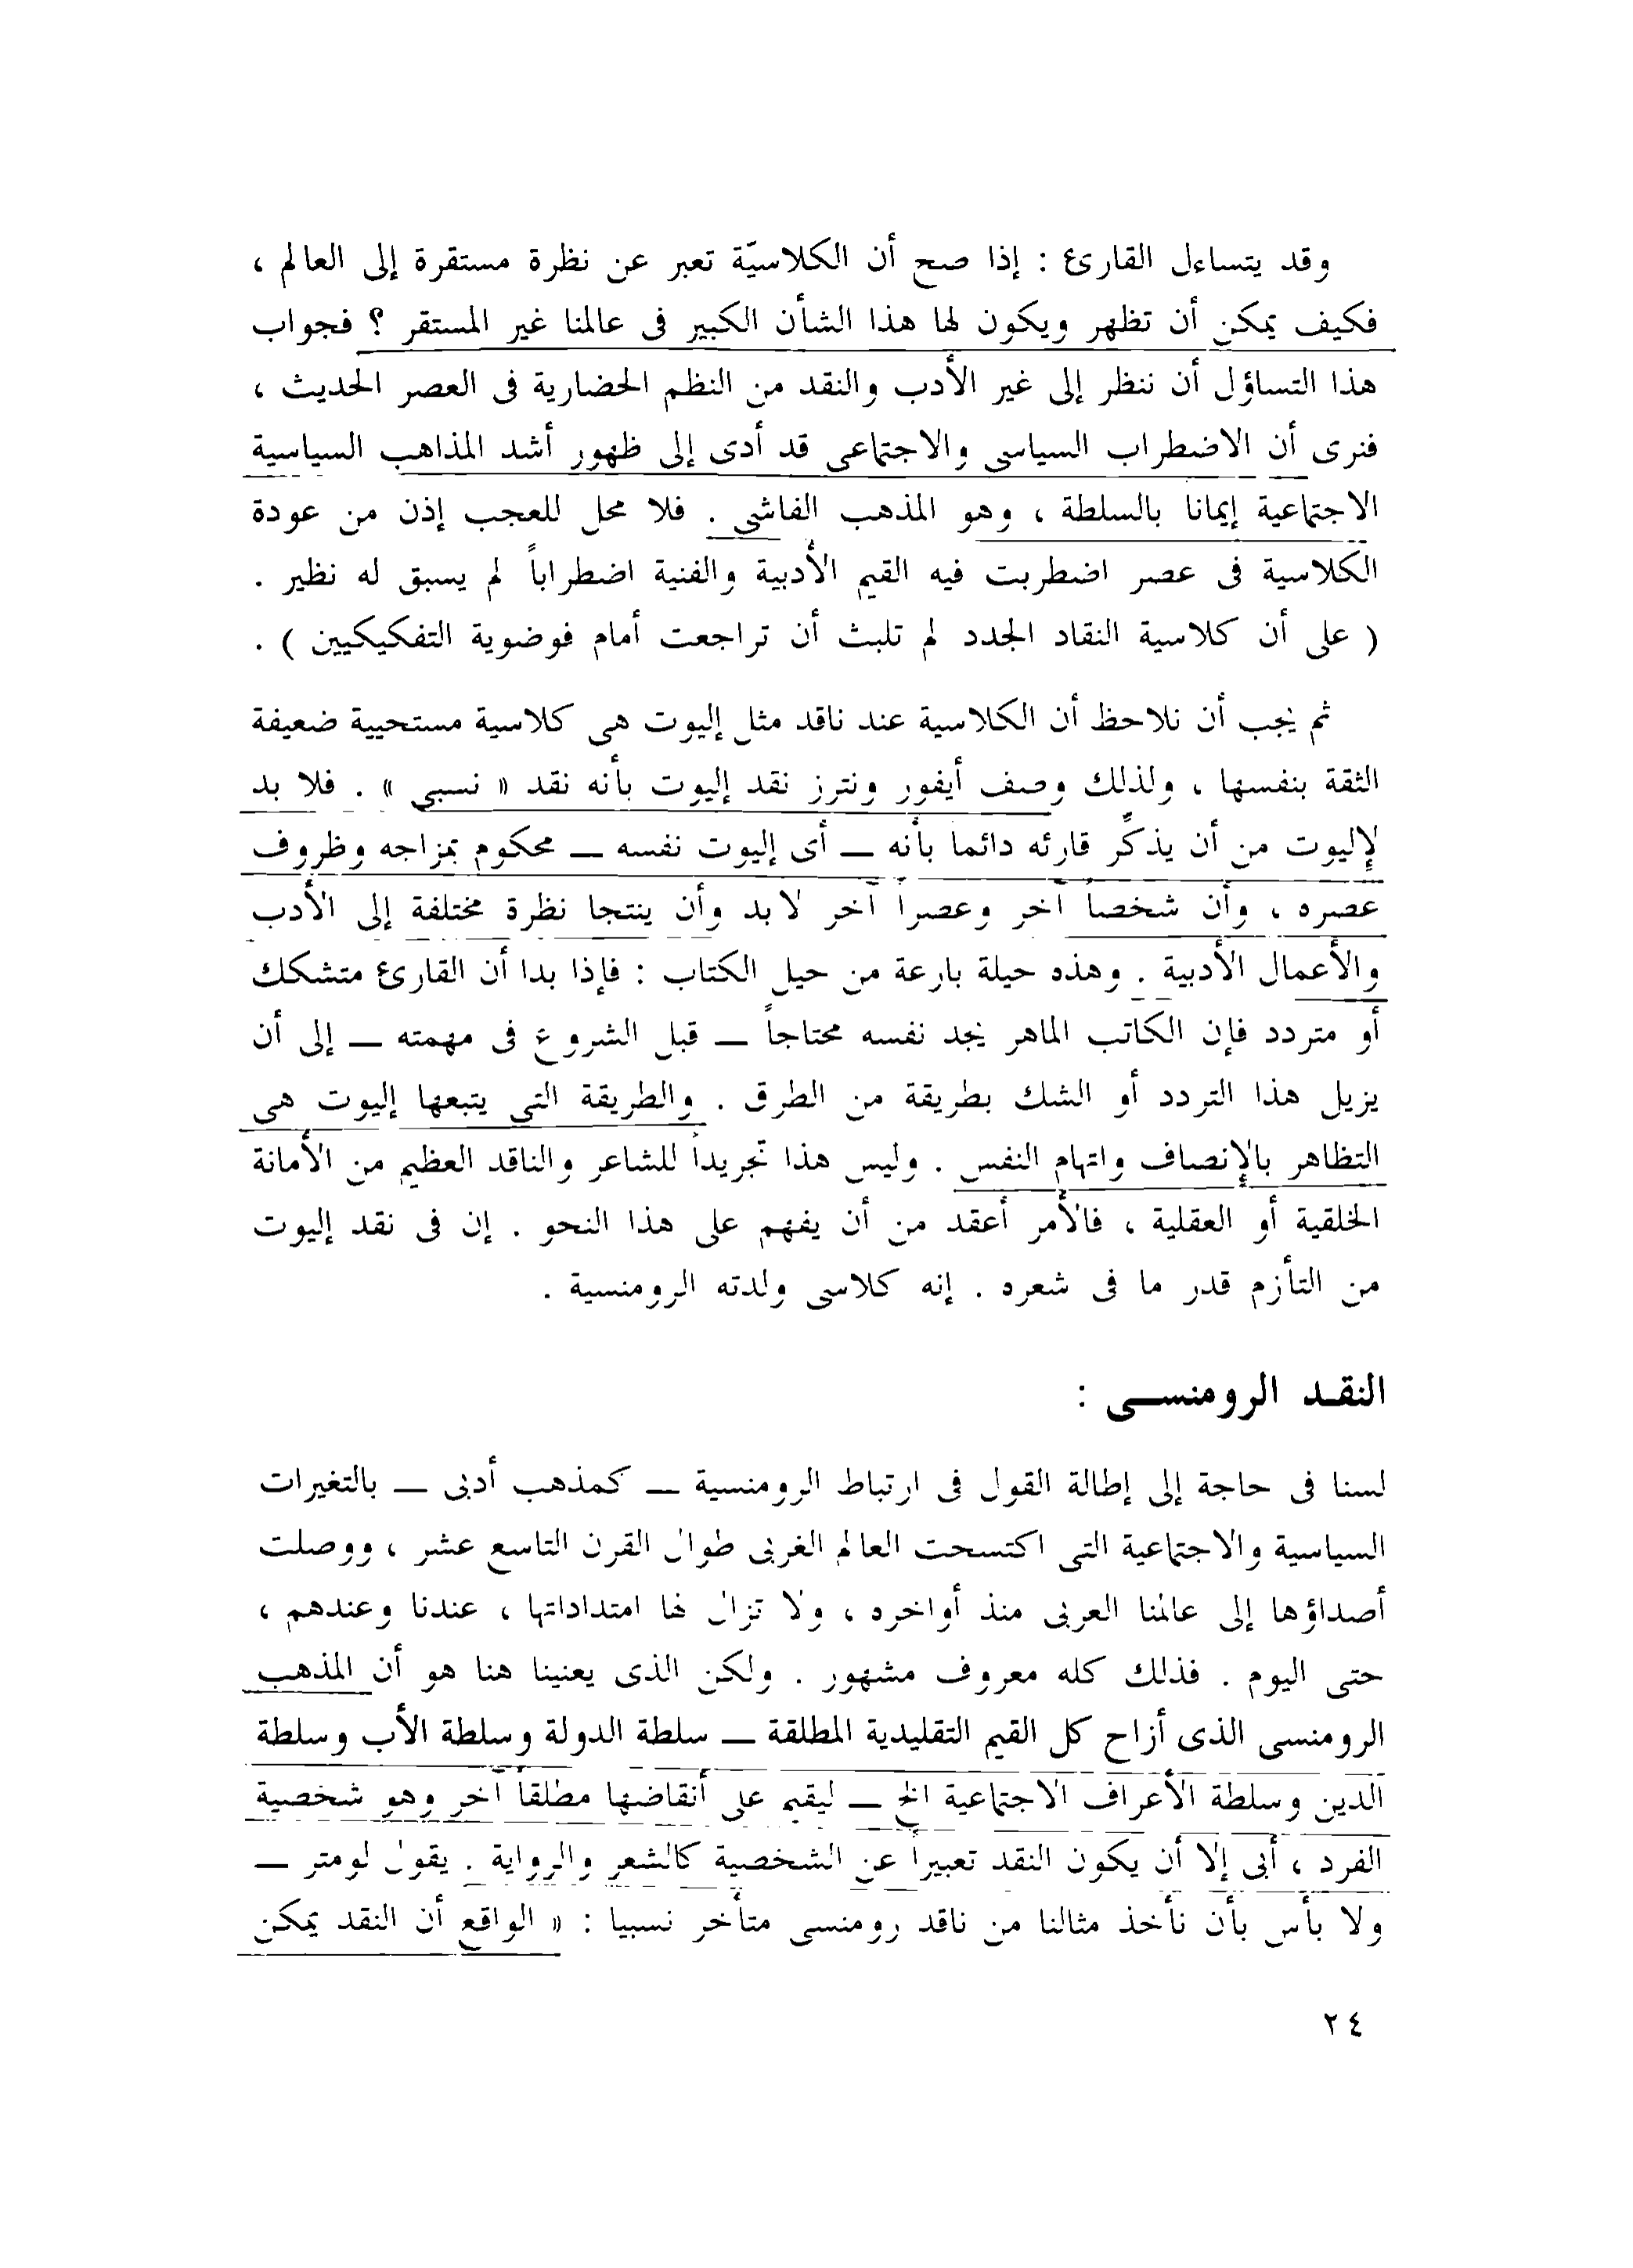 وقد يتساءل القارىء : إذا صح أن الكلاسيّة تعبر عن نظرة مستقرة إلى العالم ،
فكيف يمكن أن تظهر ويكون لها هذا الشأن الكبير فى عالمنا غير المستقر ؟ فجواب
هذا التساؤل أن ننظر إلى غير الأدب والنقد من النظم الحضارية فى العصر الحديث ،
فنرى أن الاضطراب السياسى والاجتماعى قد أدى إلى ظهور أشد المذاهب السياسية
الاجتماعية إيمانا بالسلطة ، وهو المذهب الفاشى . فلا محل للعجب إذن من عودة
الكلاسية فى عصر اضطربت فيه القيم الأدبية والفنية اضطراباً لم يسبق له نظير .
( على أن كلاسية النقاد الجدد لم تلبث أن تراجعت أمام فوضوية التفكيكيين ) .
ثم يجب أن نلاحظ أن الكلاسية عند ناقد مثل إليوت هى كلاسية مستحيية ضعيفة
الثقة بنفسها ، ولذلك وصف أيفور ونترز نقد إليوت بأنه نقد « نسبى » . فلا بد
لإليوت من أن يذكِّر قارئه دائما بأنه ـــ أى إليوت نفسه ـــ محكوم بمزاجه وظروف
عصره ، وأن شخصاً آخر وعصراً آخر لابد وأن ينتجا نظرة مختلفة إلى الأدب
والأعمال الأدبية . وهذه حيلة بارعة من حيل الكتاب : فإذا بدا أن القارىء متشكك
أو متردد فإن الكاتب الماهر يجد نفسه محتاجاً ـــ قبل الشروع فى مهمته ـــ إلى أن
يزيل هذا التردد أو الشك بطريقة من الطرق . والطريقة التى يتبعها إليوت هى
التظاهر بالإنصاف واتهام النفس . وليس هذا تجريداً للشاعر والناقد العظيم من الأمانة
الخلقية أو العقلية ، فالأمر أعقد من أن يفهم على هذا النحو . إن فى نقد إليوت
من التأزم قدر ما فى شعره . إنه كلاسى ولدته الرومنسية .
النقـد الرومنســى :
لسنا فى حاجة إلى إطالة القول فى ارتباط الرومنسية ـــ كمذهب أدبى ـــ بالتغيرات
السياسية والاجتماعية التى اكتسحت العالم الغربى طوال القرن التاسع عشر ، ووصلت
أصداؤها إلى عالمنا العربى منذ أواخره ، ولا تزال لها امتداداتها ، عندنا وعندهم ،
حتى اليوم . فذلك كله معروف مشهور . ولكن الذى يعنينا هنا هو أن المذهب
الرومنسى الذى أزاح كل القيم التقليدية المطلقة ـــ سلطة الدولة وسلطة الأب وسلطة
الدين وسلطة الأعراف الاجتماعية الخ ـــ ليقيم على أنقاضها مطلقاً آخر وهو شخصية
الفرد ، أبى إلا أن يكون النقد تعبيراً عن الشخصية كالشعر والرواية . يقول لومتر ـــ
ولا بأس بأن نأخذ مثالنا من ناقد رومنسى متأخر نسبيا : « الواقع أن النقد يمكن
٢٤